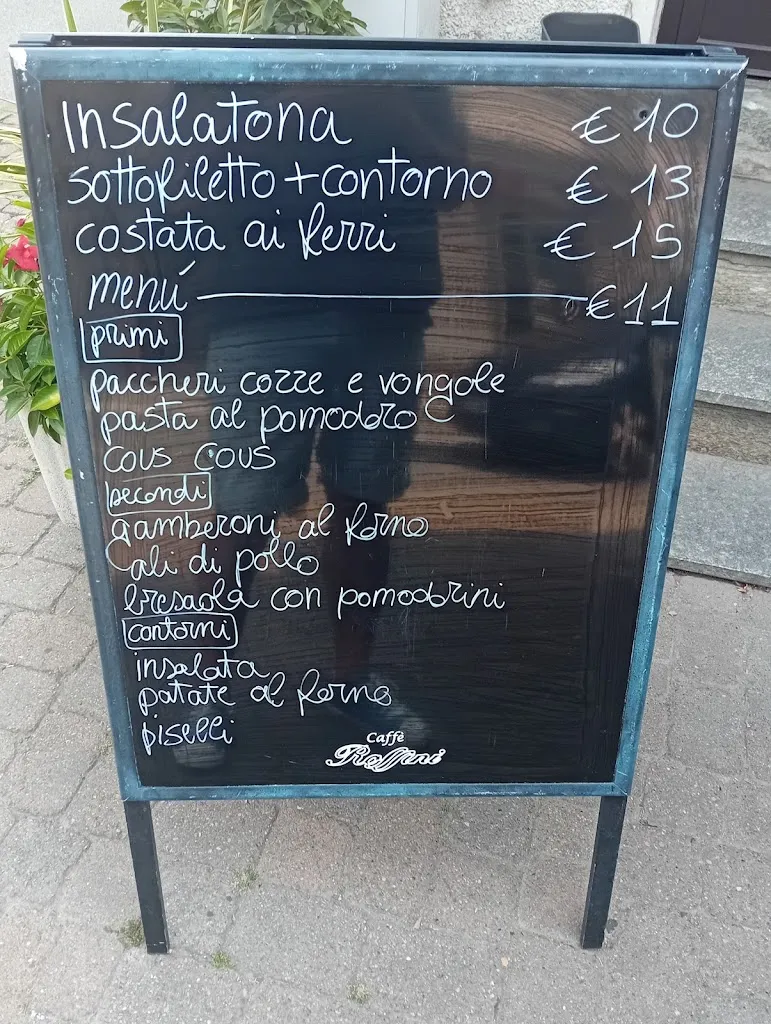 Insalatona € 10
sottofiletto + contorno € 13
costata ai ferri € 15
menú € 11
primi
paccheri cozze e vongole
pasta al pomodoro
cous cous
secondi
gamberoni al forno
ali di pollo
bresaola con pomodorini
contorni
insalata
patate al forno
piselli
Caffè